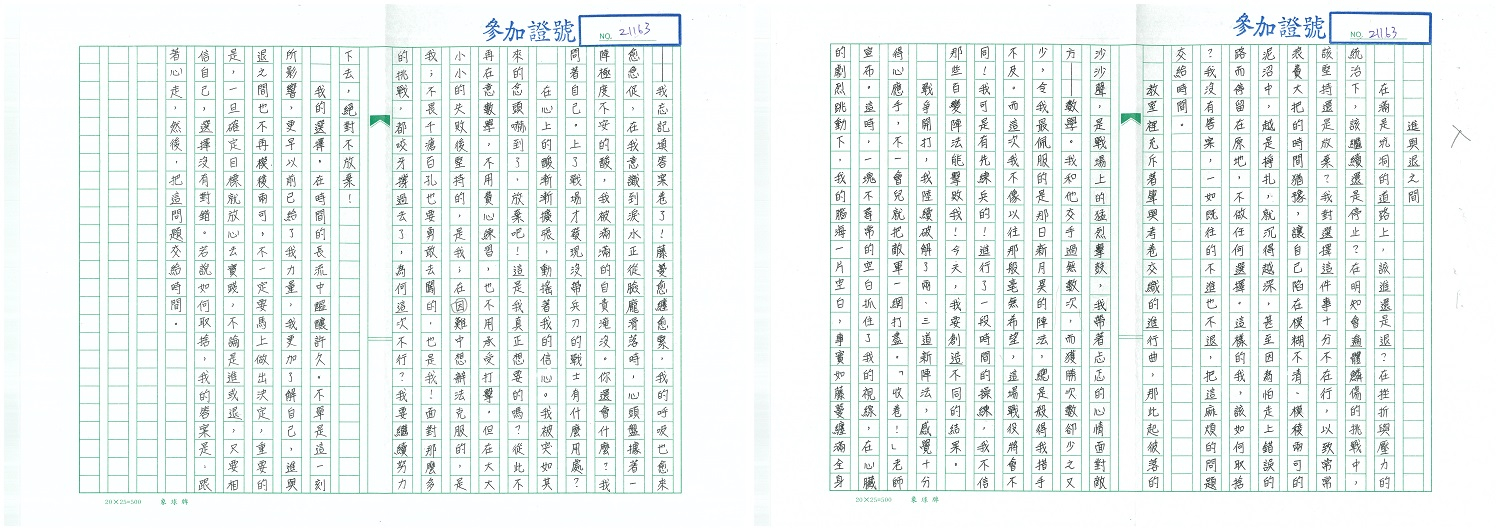 參加證號
NO. 21163
進與退之間
在滿是坑洞的道路上，該進還是退？在挫折與壓力的
統治下，該繼續還是停止？在明知會遍體鱗傷的挑戰中，
該堅持還是放棄？我對選擇這件事十分不在行，以致常常
浪費大把的時間猶豫，讓自己陷在模糊不清、模稜兩可的
泥沼中，越是掙扎，就沉得越深，甚至因為怕走上錯誤的
路而停留在原地，不做任何選擇。這樣的我，該如何取捨
？我沒有答案，一如既往的不進也不退，把這麻煩的問題
交給時間。
教室裡充斥著筆與考卷交織的進行曲，那此起彼落的
沙沙聲，是戰場上的猛烈擊鼓，我帶著忐忑的心情面對敵
方——數學。我和他交手過無數次，而獲勝次數卻少之又
少，令我最佩服的是那日新月異的陣法，總是殺得我措手
不及。而這次我不像以往那般毫無希望，這場戰役將會不
同！我可是有先練兵的！進行了一段時間的操練，我不信
那些百變陣法能擊敗我！今天，我要創造不同的結果。
戰爭開打，我陸續破解了兩、三道新陣法，感覺十分
得心應手，不一會兒就把敵軍一網打盡。「收卷！」老師
宣布。這時，一塊不尋常的空白抓住了我的視線，在心臟
的劇烈跳動下，我的腦海一片空白，事實如藤蔓纏滿全身
20×25=500 象球牌
參加證號
NO. 21163
——我忘記填答案卷了！藤蔓愈纏愈緊，我的呼吸也愈來
愈急促，在我意識到淚水正從臉龐滑落時，心頭盤據著一
陣極度不安的酸，我被滿滿的自責淹沒。你還會什麼？我
問著自己。上了戰場才發現沒帶兵刀的戰士有什麼用處？
在心上的酸漸漸擴張，動搖著我的信心。我被突如其
來的念頭嚇到了，放棄吧！這是我真正想要的嗎？從此不
再在意數學，不用費心練習，也不用承受打擊。但在大大
小小的失敗後堅持的，是我；在困難中想辦法克服的，是
我；不畏千瘡百孔也要勇敢去闖的，也是我！面對那麼多
的挑戰。都咬牙撐過去了，為何這次不行？我要繼續努力
下去，絕對不放棄！
我的選擇，在時間的長流中醞釀許久。不單是這一刻
所影響，更早以前已給了我力量，我更加了解自己，進與
退之間也不再模稜兩可，不一定要馬上做出決定，重要的
是，一旦確定目標就放心去實踐，不論是進或退，又要相
信自己，選擇沒有對錯。若說如何取捨，我的答案是：跟
著心走，然後，把這問題交給時間。
20×25=500 象球牌